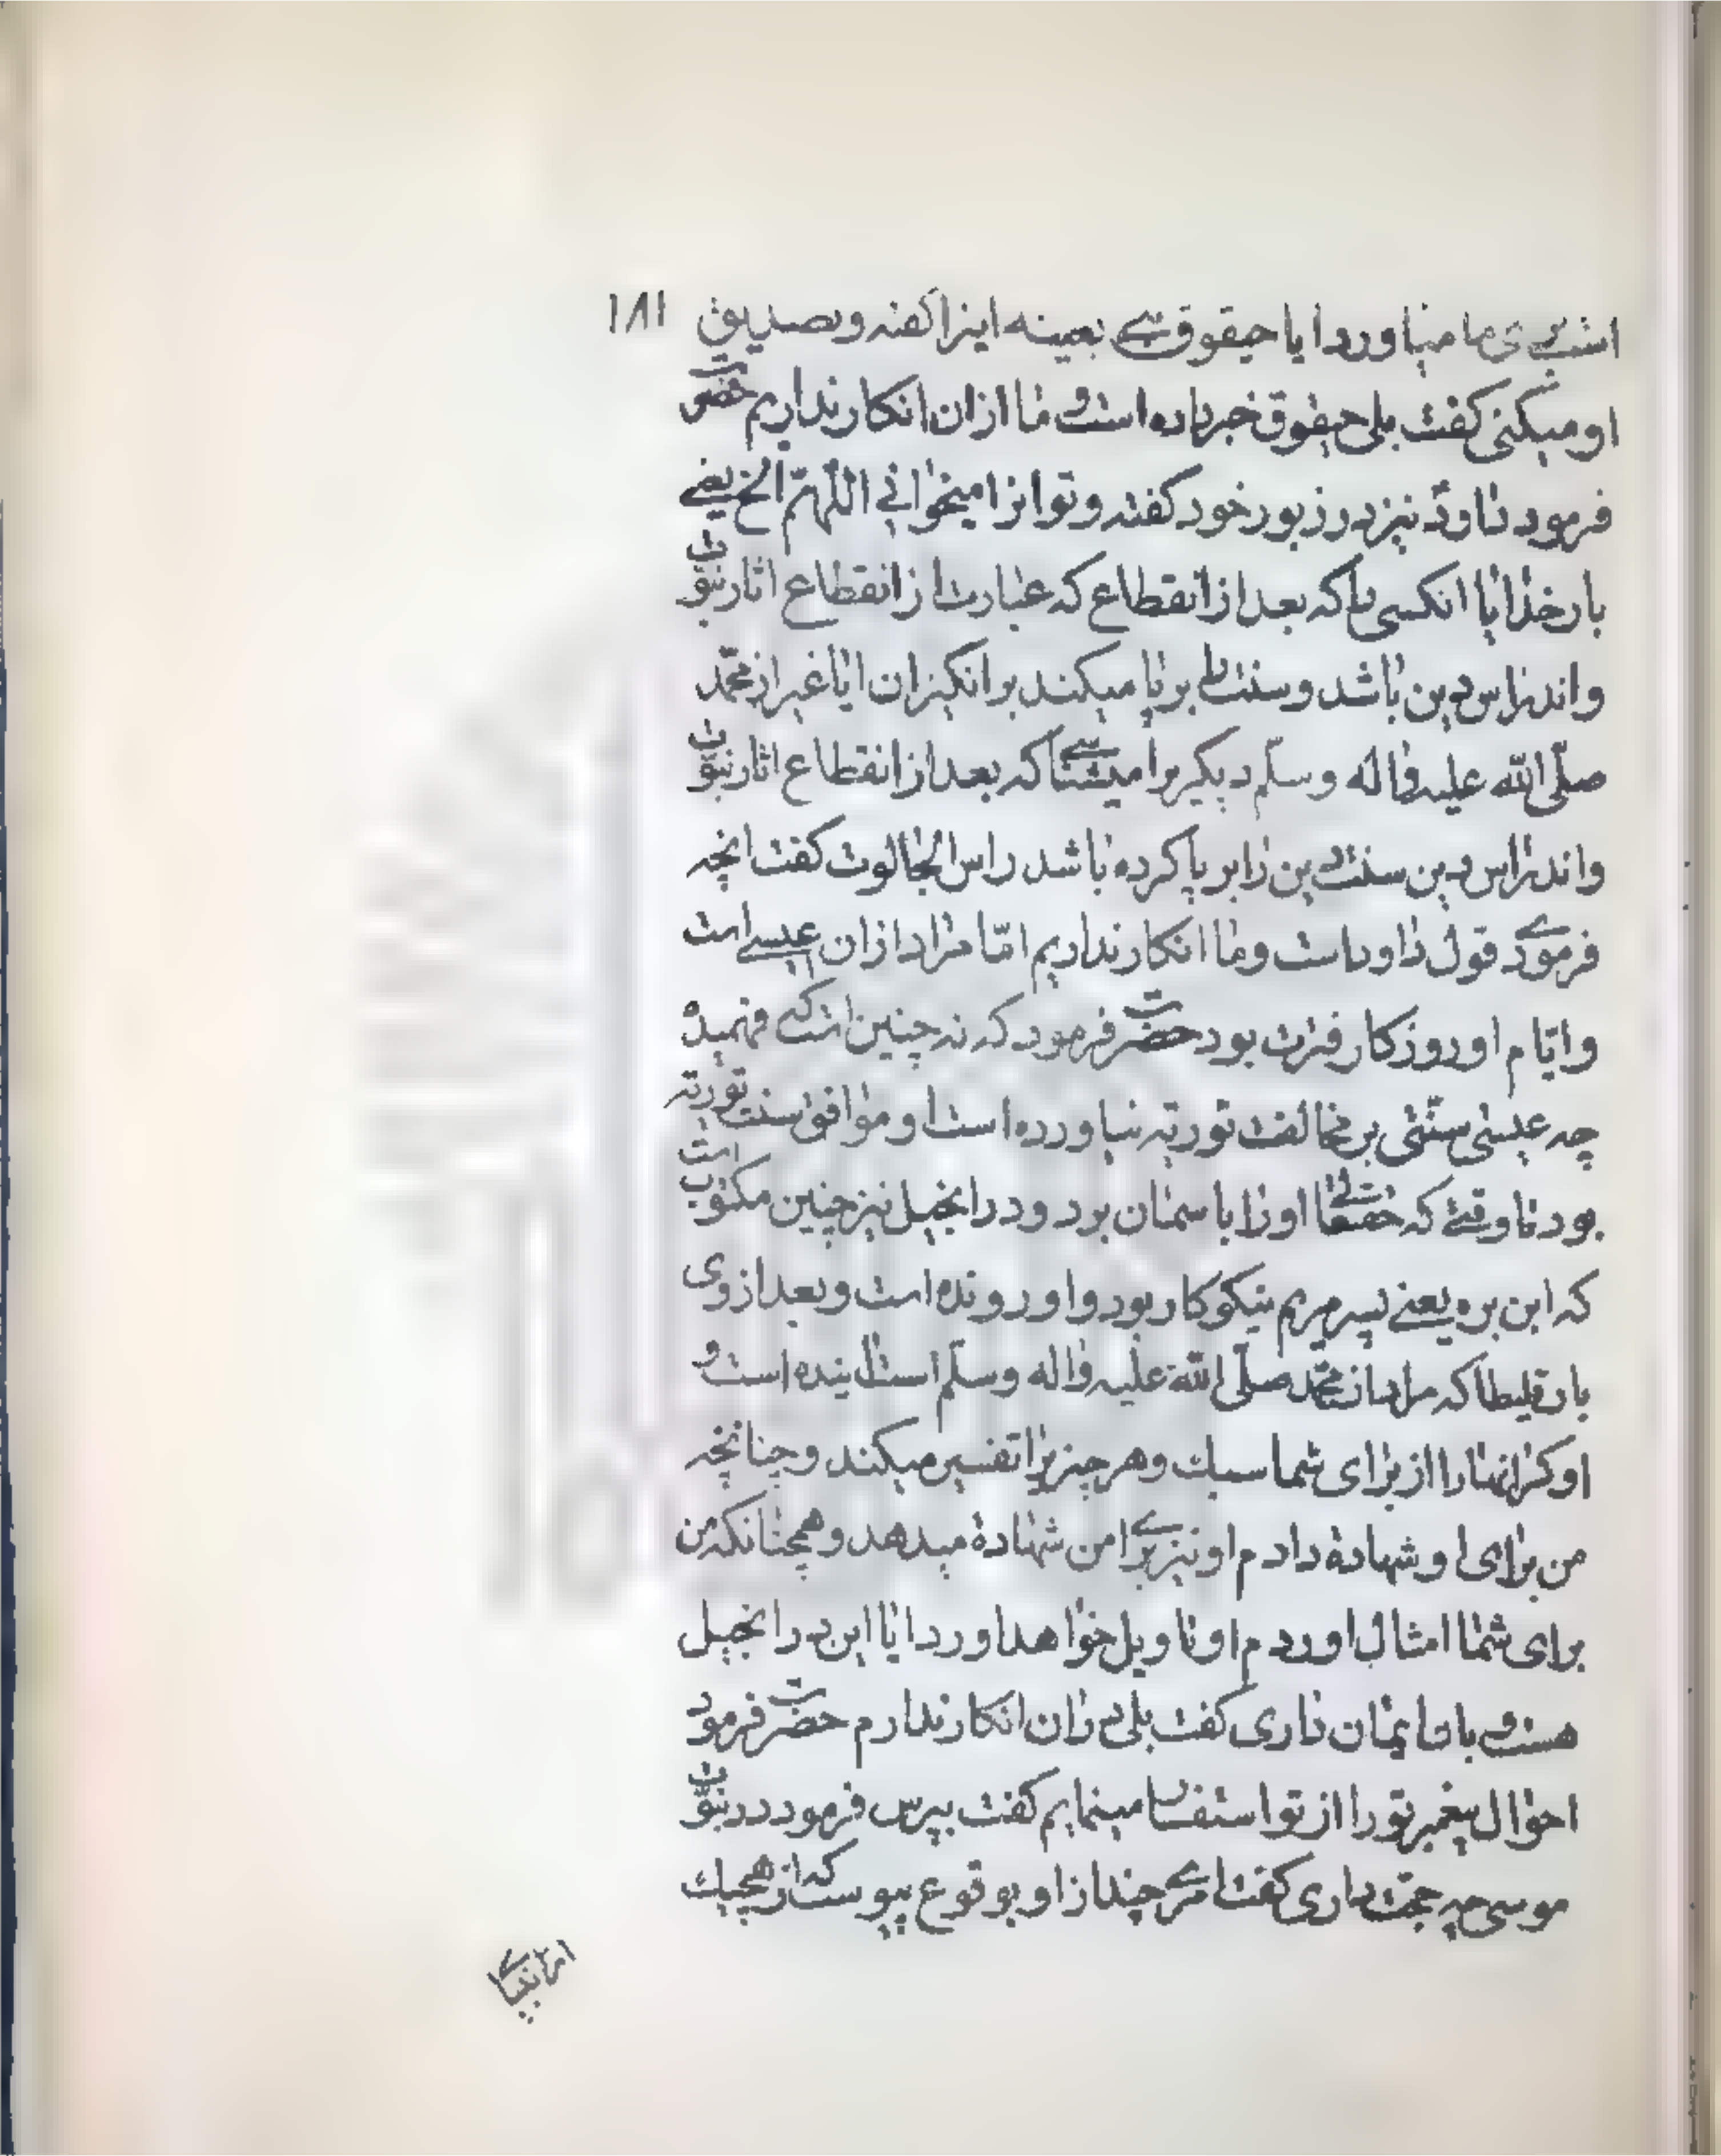 ۱۸۱
میاورد ایا حیقوق نبی بعینه اینرا گفته و تصدیق
او میکنی گفت بلی حیقوق خبر داده است و ما از ان انکار نداریم حضرت
فرمود داود نیز در زبور خود گفته و تو انرا میخوانی اللهم الخ یعنی
بار خدایا انکسی را که بعد از انقطاع که عبارت از انقطاع اثار نبوت
و اندراس دین باشد و سنت را بر پا میکند برانگیزان ایا غیر از محمد
صلی الله علیه و اله و سلم دیگریرا میشناسی که بعد از انقطاع اثار نبوت
و اندراس دین سنت دین را بر پا کرده باشد راس الجالوت گفت انچه
فرمودی قول داود است و ما انکار نداریم اما مراد از ان عیسی است
و ایام او روزکار فترت بود حضرت فرمود که نه چنین است که فهمیده
چه عیسی سنتی بر مخالفت توریة نیاورده است و موافق سنت توریة
بود تا وقتی که حقتعالی او را باسمان برد و در انجیل نیز چنین مکتوب است
که ابن بره یعنی پسر مریم نیکوکار بود و او رونده است و بعد از وی
بارقلیطا که مراد از محمد صلی الله علیه و اله و سلم است اینده است و
او کرانها را از برای شما سبک و هر چیز را تفسیر میکند و چنانچه
من برای او شهادة دادم او نیز برای من شهادة میدهد و همچنانکه من
برای شما امثال اوردم او تاویل خواهد اورد ایا این در انجیل
هست و بان ایمان داری گفت بلی از ان انکار ندارم حضرت فرمود
احوال پیغمبر تو را از تو استفسار مینمایم گفت بپرس فرمود در نبوت
موسی چه حجت داری گفت امری چند از او بوقوع پیوست که از هیچیک
از انبیای